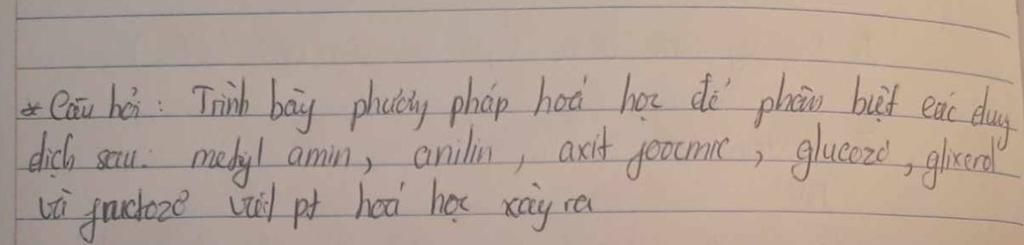 * Câu hỏi : Trình bày phương pháp hoá học để phân biệt các duy
dịch sau: metyl amin, anilin, axit foocmic, glucozơ, glixerol
và fructozơ viết pt hoá học xảy ra